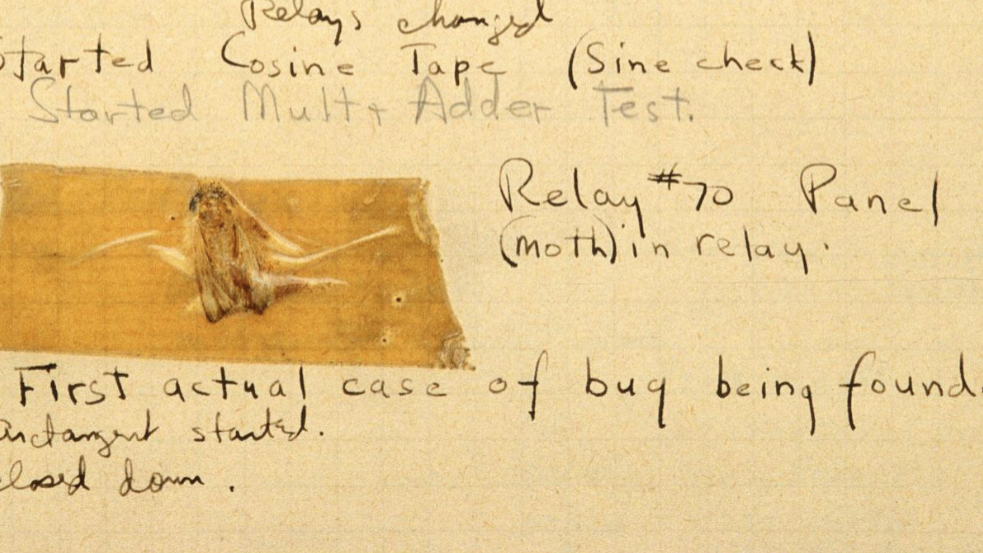 Relays changed
Started Cosine Tape (Sine check)
Started Mult + Adder Test.
Relay #70 Panel
(moth) in relay.
First actual case of bug being found.
arctangent started.
closed down.